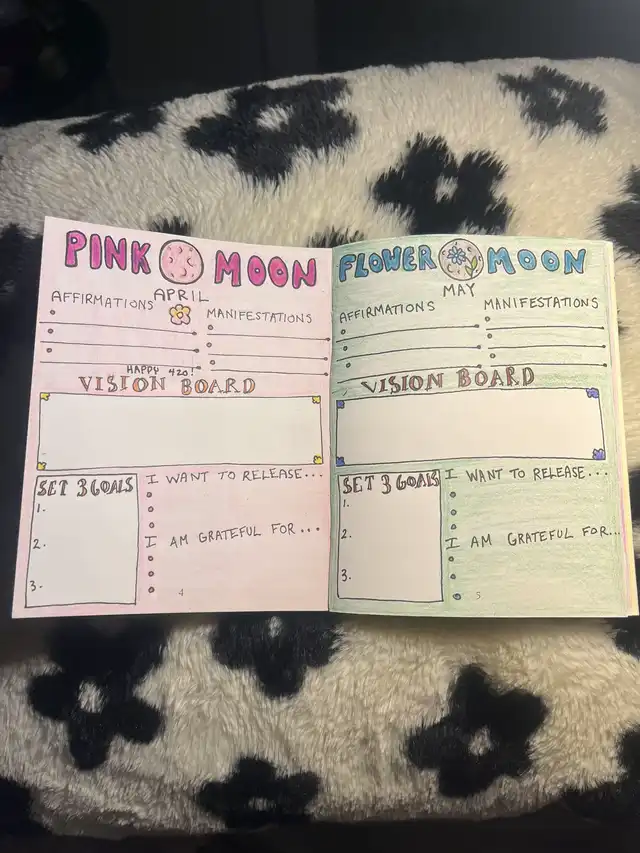 PINK MOON
APRIL
AFFIRMATIONS
MANIFESTATIONS
HAPPY 420!
VISION BOARD
SET 3 GOALS
1.
2.
3.
I WANT TO RELEASE...
I AM GRATEFUL FOR...
4
FLOWER MOON
MAY
AFFIRMATIONS
MANIFESTATIONS
VISION BOARD
SET 3 GOALS
1.
2.
3.
I WANT TO RELEASE...
I AM GRATEFUL FOR...
5